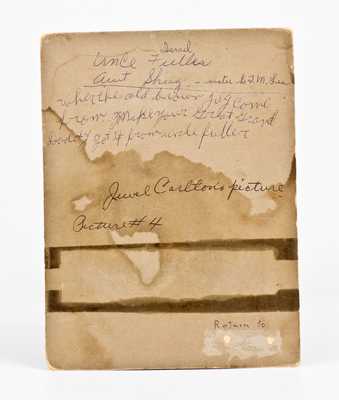 Israel
Uncle Fuller
Aunt - sister to F.M.
where the old brown jug come
from Make Your Great Grand
daddy got 4 from uncle fuller
Jewel Carlton's picture
Picture #4
Return to